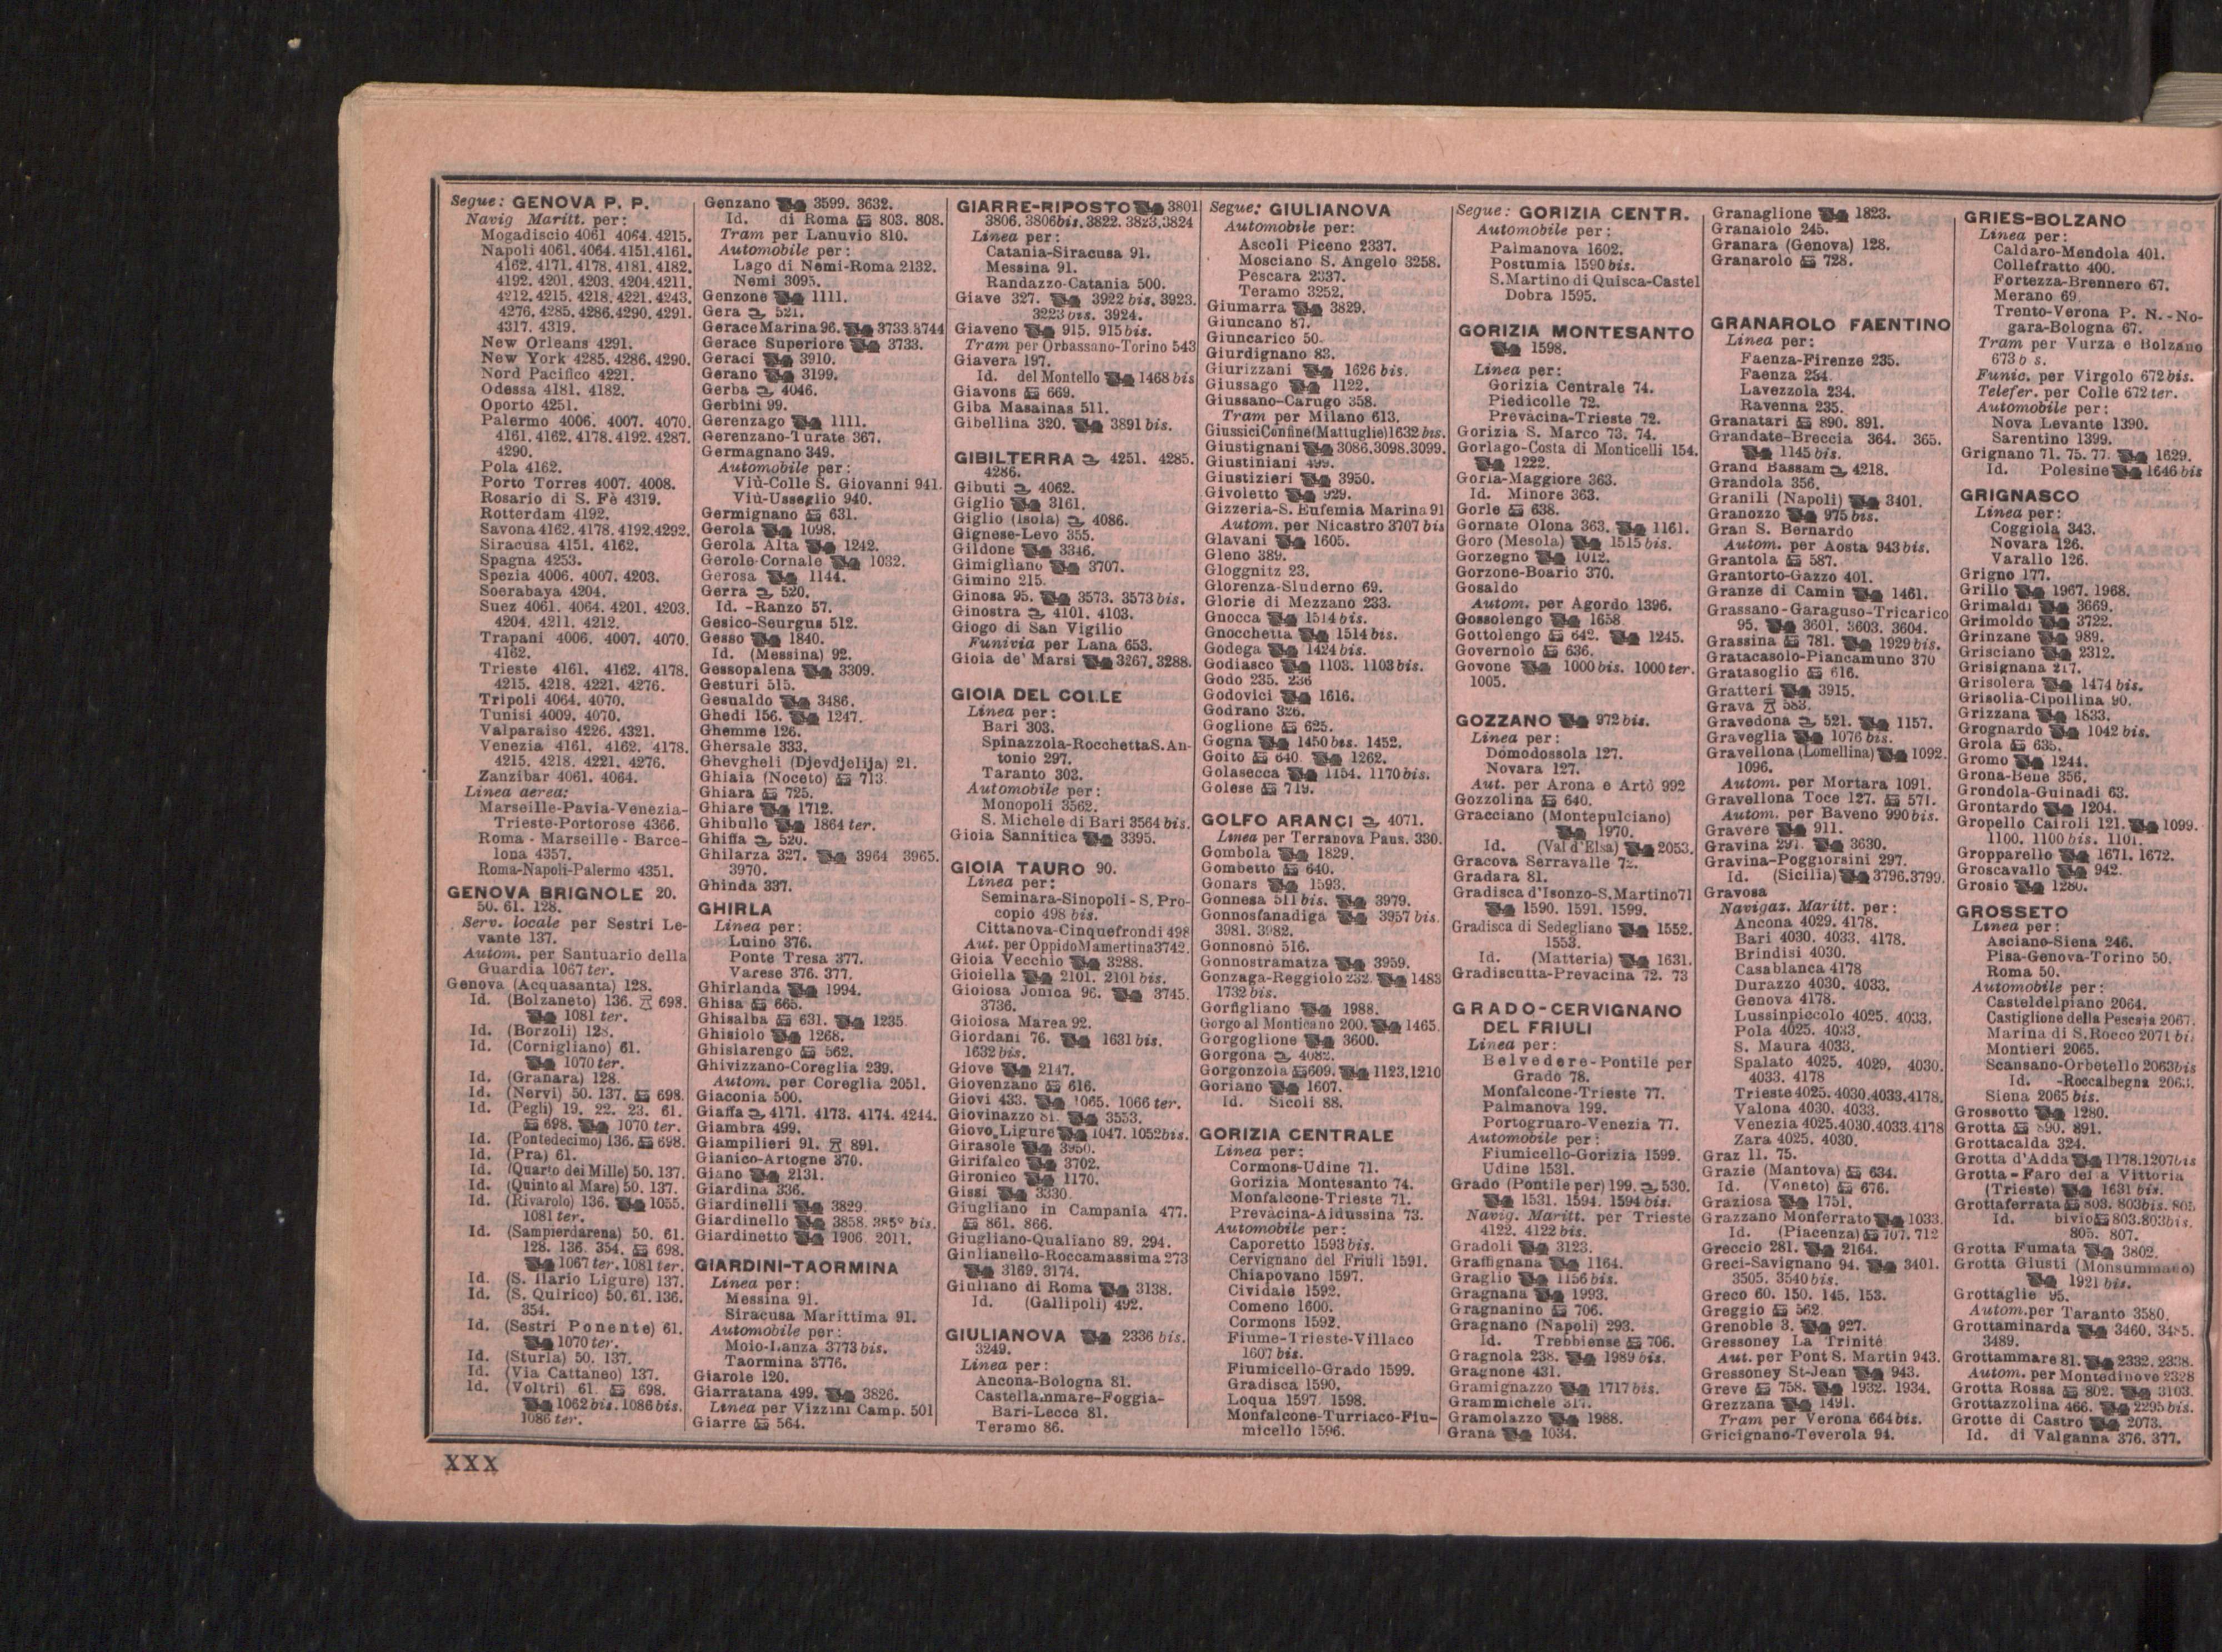 Segue: GENOVA P. P.
Navig Maritt. per:
Mogadiscio 4061 4064. 4215.
Napoli 4061. 4064. 4151. 4161.
4162. 4171. 4178. 4181. 4182.
4192. 4201. 4203. 4204. 4211.
4212. 4215. 4218. 4221. 4243.
4276. 4285. 4286. 4290. 4291.
4317. 4319.
New Orleans 4291.
New York 4285. 4286. 4290.
Nord Pacifico 4221.
Odessa 4181. 4182.
Oporto 4251.
Palermo 4006. 4007. 4070.
4161. 4162. 4178. 4192. 4287.
4290.
Pola 4162.
Porto Torres 4007. 4008.
Rosario di S. Fè 4319.
Rotterdam 4192.
Savona 4162. 4178. 4192. 4292.
Siracusa 4151. 4162.
Spagna 4253.
Spezia 4006. 4007. 4203.
Soerabaya 4204.
Suez 4061. 4064. 4201. 4203.
4204. 4211. 4212.
Trapani 4006. 4007. 4070.
4162.
Trieste 4161. 4162. 4178.
4215. 4218. 4221. 4276.
Tripoli 4064. 4070.
Tunisi 4009. 4070.
Valparaiso 4226. 4321.
Venezia 4161. 4162. 4178.
4215. 4218. 4221. 4276.
Zanzibar 4061. 4064.
Linea aerea:
Marseille-Pavia-Venezia-
Trieste-Portorose 4366.
Roma - Marseille - Barce-
lona 4357.
Roma-Napoli-Palermo 4351.
GENOVA BRIGNOLE 20.
50. 61. 128.
Serv. locale per Sestri Le-
vante 137.
Autom. per Santuario della
Guardia 1067 ter.
Genova (Acquasanta) 128.
Id. (Bolzaneto) 136. 698.
1081 ter.
Id. (Borzoli) 128.
Id. (Cornigliano) 61.
1070 ter.
Id. (Granara) 128.
Id. (Nervi) 50. 137. 698.
Id. (Pegli) 19. 22. 23. 61.
698. 1070 ter.
Id. (Pontedecimo) 136. 698.
Id. (Pra) 61.
Id. (Quarto dei Mille) 50. 137.
Id. (Quinto al Mare) 50. 137.
Id. (Rivarolo) 136. 1055.
1081 ter.
Id. (Sampierdarena) 50. 61.
128. 136. 354. 698.
1067 ter. 1081 ter.
Id. (S. Ilario Ligure) 137.
Id. (S. Quirico) 50. 61. 136.
354.
Id. (Sestri Ponente) 61.
1070 ter.
Id. (Sturla) 50. 137.
Id. (Via Cattaneo) 137.
Id. (Voltri) 61. 698.
1062 bis. 1086 bis.
1086 ter.
Genzano 3599. 3632.
Id. di Roma 803. 808.
Tram per Lanuvio 810.
Automobile per:
Lago di Nemi-Roma 2132.
Nemi 3095.
Genzone 1111.
Gera 521.
Gerace Marina 96. 3733. 3744
Gerace Superiore 3733.
Geraci 3910.
Gerano 3199.
Gerba 4046.
Gerbini 99.
Gerenzago 1111.
Gerenzano-Turate 367.
Germagnano 349.
Automobile per:
Viù-Colle S. Giovanni 941.
Viù-Usseglio 940.
Germignano 631.
Gerola 1098.
Gerola Alta 1242.
Gerole-Cornale 1032.
Gerosa 1144.
Gerra 520.
Id. -Ranzo 57.
Gesico-Seurgus 512.
Gesso 1840.
Id. (Messina) 92.
Gessopalena 3309.
Gesturi 515.
Gesualdo 3486.
Ghedi 156. 1247.
Ghemme 126.
Ghersale 333.
Ghevgheli (Djevdjelija) 21.
Ghiaia (Noceto) 713
Ghiara 725.
Ghiare 1712.
Ghibullo 1864 ter.
Ghiffa 520.
Ghilarza 327. 3964 3965.
3970.
Ghinda 337.
GHIRLA
Linea per:
Luino 376.
Ponte Tresa 377.
Varese 376. 377.
Ghirlanda 1994.
Ghisa 665.
Ghisalba 631. 1235
Ghisiolo 1268.
Ghislarengo 562.
Ghivizzano-Coreglia 239.
Autom. per Coreglia 2051.
Giaconia 500.
Giaffa 4171. 4173. 4174. 4244.
Giambra 499.
Giampilieri 91. 891.
Gianico-Artogne 370.
Giano 2131.
Giardina 336.
Giardinelli 3829
Giardinello 3858. bis.
Giardinetto 1906. 2011.
GIARDINI-TAORMINA
Linea per:
Messina 91.
Siracusa Marittima 91.
Automobile per:
Moio-Lanza 3773 bis.
Taormina 3776.
Giarole 120.
Giarratana 499. 3826.
Linea per Vizzini Camp. 501
Giarre 564.
GIARRE-RIPOSTO 3801
3806. 3806 bis. 3822. 3823. 3824
Linea per:
Catania-Siracusa 91.
Messina 91.
Randazzo-Catania 500.
Giave 327. 3922 bis. 3923.
3223 bis. 3924.
Giaveno 915. 915 bis.
Tram per Orbassano-Torino 543
Giavera 197.
Id. del Montello 1468 bis
Giavons 669.
Giba Masainas 511.
Gibellina 320. 3891 bis.
GIBILTERRA 4251. 4285.
4286.
Gibuti 4062.
Giglio 3161.
Giglio (Isola) 4086.
Gignese-Levo 355.
Gildone 3346.
Gimigliano 3707.
Gimino 215.
Ginosa 95. 3573. 3573 bis.
Ginostra 4101. 4103.
Giogo di San Vigilio
Funivia per Lana 653.
Gioia de' Marsi 3267. 3288.
GIOIA DEL COLLE
Linea per:
Bari 303.
Spinazzola-Rocchetta S. An-
tonio 297.
Taranto 303.
Automobile per:
Monopoli 3562.
S. Michele di Bari 3564 bis.
Gioia Sannitica 3395.
GIOIA TAURO 90.
Linea per:
Seminara-Sinopoli - S. Pro-
copio 498 bis.
Cittanova-Cinquefrondi 498
Aut. per Oppido Mamertina 3742.
Gioia Vecchio 3288.
Gioiella 2101. 2101 bis.
Gioiosa Jonica 96. 3745.
3736.
Gioiosa Marea 92.
Giordani 76. 1631 bis.
1632 bis.
Giove 2147.
Giovenzano 616.
Giovi 433. 1065. 1066 ter.
Giovinazzo 81. 3553.
Giovo Ligure 1047. 1052 bis.
Girasole 3950.
Girifalco 3702.
Gironico 1170.
Gissi 3330
Giugliano in Campania 477.
861. 866.
Giugliano-Qualiano 89. 294.
Giulianello-Roccamassima 273
3169. 3174.
Giuliano di Roma 3138.
Id. (Gallipoli) 492.
GIULIANOVA 2336 bis.
3249.
Linea per:
Ancona-Bologna 81.
Castellammare-Foggia-
Bari-Lecce 81.
Teramo 86.
Segue: GIULIANOVA
Automobile per:
Ascoli Piceno 2337.
Mosciano S. Angelo 3258.
Pescara 2337.
Teramo 3252.
Giumarra 3829.
Giuncano 87.
Giuncarico 50
Giurdignano 83.
Giurizzani 1626 bis.
Giussago 1122.
Giussano-Carugo 358.
Tram per Milano 613.
Giussici Confine (Mattuglie) 1632 bis.
Giustignani 3086. 3098. 3099.
Giustiniani 499.
Giustizieri 3950.
Givoletto 929.
Gizzeria-S. Eufemia Marina 91
Autom. per Nicastro 3707 bis
Glavani 1605.
Gleno 389.
Gloggnitz 23.
Glorenza-Sluderno 69.
Glorie di Mezzano 233.
Gnocca 1514 bis.
Gnocchetta 1514 bis.
Godega 1424 bis.
Godiasco 1103. 1103 bis.
Godo 235. 236
Godovici 1616.
Godrano 326.
Goglione 625.
Gogna 1450 bis. 1452.
Goito 640. 1262.
Golasecca 1154. 1170 bis.
Golese 719.
GOLFO ARANCI 4071.
Linea per Terranova Paus. 330.
Gombola 1829.
Gombetto 640.
Gonars 1593.
Gonnesa 511 bis. 3979.
Gonnosfanadiga 3957 bis.
3981. 3982.
Gonnosnò 516.
Gonnostramatza 3959.
Gonzaga-Reggiolo 232. 1483
1732 bis.
Gorfigliano 1988.
Gorgo al Monticano 200. 1465.
Gorgoglione 3600.
Gorgona 4082.
Gorgonzola 609. 1123. 1210
Goriano 1607.
Id. Sicoli 88.
GORIZIA CENTRALE
Linea per:
Cormons-Udine 71.
Gorizia Montesanto 74.
Monfalcone-Trieste 71.
Prevàcina-Aidussina 73.
Automobile per:
Caporetto 1593 bis.
Cervignano del Friuli 1591.
Chiapovano 1597.
Cividale 1592.
Comeno 1600.
Cormons 1592.
Fiume-Trieste-Villaco
1607 bis.
Fiumicello-Grado 1599.
Gradisca 1590.
Loqua 1597. 1598.
Monfalcone-Turriaco-Fiu-
micello 1596.
Segue: GORIZIA CENTR.
Automobile per:
Palmanova 1602.
Postumia 1590 bis.
S. Martino di Quisca-Castel
Dobra 1595.
GORIZIA MONTESANTO
1598.
Linea per:
Gorizia Centrale 74.
Piedicolle 72.
Prevàcina-Trieste 72.
Gorizia S. Marco 73. 74.
Gorlago-Costa di Monticelli 154.
1222.
Gorla-Maggiore 363.
Id. Minore 363.
Gorle 638.
Gornate Olona 363. 1161.
Goro (Mesola) 1515 bis.
Gorzegno 1012.
Gorzone-Boario 370.
Gosaldo
Autom. per Agordo 1396.
Gossolengo 1658
Gottolengo 642. 1245.
Governolo 636.
Govone 1000 bis. 1000 ter.
1005.
GOZZANO 972 bis.
Linea per:
Domodossola 127.
Novara 127.
Aut. per Arona e Artò 992
Gozzolina 640.
Gracciano (Montepulciano)
1970.
Id. (Val d'Elsa) 2053.
Gracova Serravalle 72.
Gradara 81.
Gradisca d'Isonzo-S. Martino 71
1590. 1591. 1599.
Gradisca di Sedegliano 1552.
1553.
Id. (Matteria) 1631.
Gradiscutta-Prevacina 72. 73
GRADO-CERVIGNANO
DEL FRIULI
Linea per:
Belvedere-Pontile per
Grado 78.
Monfalcone-Trieste 77.
Palmanova 199.
Portogruaro-Venezia 77.
Automobile per:
Fiumicello-Gorizia 1599.
Udine 1531.
Grado (Pontile per) 199. 530.
1531. 1594. 1594 bis.
Navig. Maritt. per Trieste
4122. 4122 bis.
Gradoli 3123.
Graffignana 1164.
Graglio 1156 bis.
Gragnana 1993.
Gragnanino 706.
Gragnano (Napoli) 293.
Id. Trebbiense 706.
Gragnola 238. 1989 bis.
Gragnone 431.
Gramignazzo 1717 bis.
Grammichele 317.
Gramolazzo 1988.
Grana 1034.
Granaglione 1823.
Granaiolo 245.
Granara (Genova) 128.
Granarolo 728.
GRANAROLO FAENTINO
Linea per:
Faenza-Firenze 235.
Faenza 234.
Lavezzola 234.
Ravenna 235.
Granatari 890. 891.
Grandate-Breccia 364. 365.
1145 bis.
Grand Bassam 4218.
Grandola 356.
Granili (Napoli) 3401.
Granozzo 975 bis.
Gran S. Bernardo
Autom. per Aosta 943 bis.
Grantola 587.
Grantorto-Gazzo 401.
Granze di Camin 1461.
Grassano-Garaguso-Tricarico
95. 3601. 3603. 3604.
Grassina 781. 1929 bis.
Gratacasolo-Piancamuno 370
Gratasoglio 616.
Gratteri 3915.
Grava 583.
Gravedona 521. 1157.
Graveglia 1076 bis.
Gravellona (Lomellina) 1092.
1096.
Autom. per Mortara 1091.
Gravellona Toce 127. 571.
Autom. per Baveno 990 bis.
Gravere 911.
Gravina 297. 3630.
Gravina-Poggiorsini 297.
Id. (Sicilia) 3796. 3799.
Gravosa
Navigaz. Maritt. per:
Ancona 4029. 4178.
Bari 4030. 4033. 4178.
Brindisi 4030.
Casablanca 4178
Durazzo 4030. 4033.
Genova 4178.
Lussinpiccolo 4025. 4033.
Pola 4025. 4033.
S. Maura 4033.
Spalato 4025. 4029. 4030.
4033. 4178
Trieste 4025. 4030. 4033. 4178.
Valona 4030. 4033.
Venezia 4025. 4030. 4033. 4178
Zara 4025. 4030.
Graz 11. 75.
Grazie (Mantova) 634.
Id. (Veneto) 676.
Graziosa 1751.
Grazzano Monferrato 1033.
Id. (Piacenza) 707. 712
Greccio 281. 2164.
Greci-Savignano 94. 3401.
3505. 3540 bis.
Greco 60. 150. 145. 153.
Greggio 562
Grenoble 3. 927.
Gressoney La Trinité
Aut. per Pont S. Martin 943.
Gressoney St-Jean 943.
Greve 758. 1932. 1934.
Grezzana 1491.
Tram per Verona 664 bis.
Gricignano-Teverola 94.
GRIES-BOLZANO
Linea per:
Caldaro-Mendola 401.
Collefratto 400.
Fortezza-Brennero 67.
Merano 69.
Trento-Verona P. N. - No-
gara-Bologna 67.
Tram per Vurza e Bolzano
673 b s.
Funic. per Virgolo 672 bis.
Telefer. per Colle 672 ter.
Automobile per:
Nova Levante 1390.
Sarentino 1399.
Grignano 71. 75. 77. 1629.
Id. Polesine 1646 bis
GRIGNASCO
Linea per:
Coggiola 343.
Novara 126.
Varallo 126.
Grigno 177.
Grillo 1967. 1968.
Grimaldi 3669.
Grimoldo 3722.
Grinzane 989.
Grisciano 2312.
Grisignana 217.
Grisolera 1474 bis.
Grisolia-Cipollina 90.
Grizzana 1833.
Grognardo 1042 bis.
Grola 635.
Gromo 1244.
Grona-Bene 356.
Grondola-Guinadi 63.
Grontardo 1204.
Gropello Cairoli 121. 1099.
1100. 1100 bis. 1101.
Gropparello 1671. 1672.
Groscavallo 942.
Grosio 1280.
GROSSETO
Linea per:
Asciano-Siena 246.
Pisa-Genova-Torino 50.
Roma 50.
Automobile per:
Casteldelpiano 2064.
Castiglione della Pescaja 2067.
Marina di S. Rocco 2071 bi.
Montieri 2065.
Scansano-Orbetello 2063 bis
Id. -Roccalbegna 2063.
Siena 2065 bis.
Grossotto 1280.
Grotta 890. 891.
Grottacalda 324.
Grotta d'Adda 1178. 1207 bis
Grotta - Faro del a Vittoria
(Trieste) 1631 bis.
Grottaferrata 803. 803 bis. 805
Id. bivio 803. 803 bis.
805. 807.
Grotta Fumata 3802.
Grotta Giusti (Monsummano)
1921 bis.
Grottaglie 95.
Autom. per Taranto 3580.
Grottaminarda 3460. 3485.
3489.
Grottammare 81. 2332. 2338.
Autom. per Montedinove 2328
Grotta Rossa 802. 3103.
Grottazzolina 466. 2295 bis.
Grotte di Castro 2073.
Id. di Valganna 376. 377.
XXX